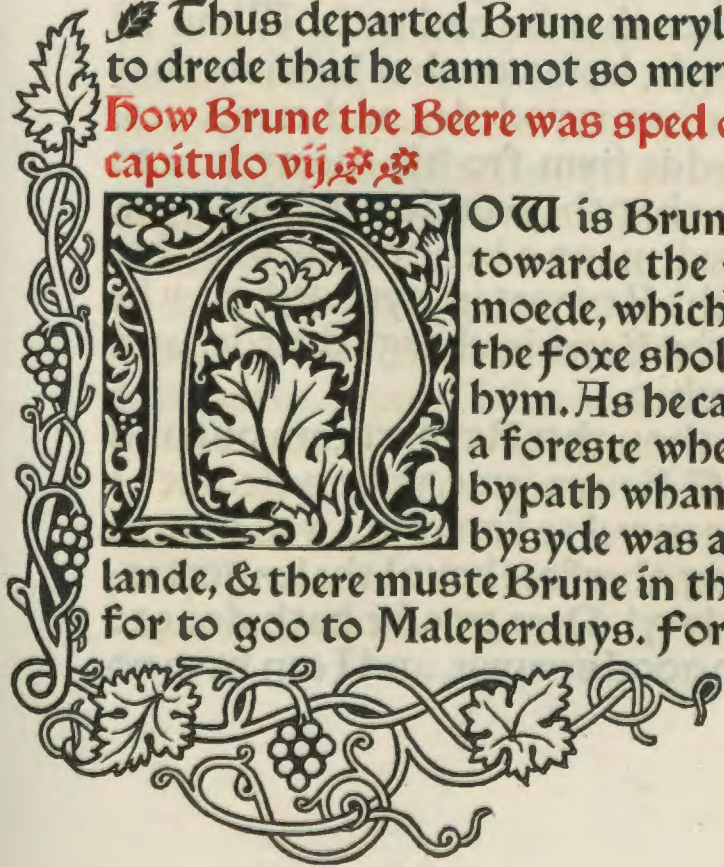 Thus departed Brune meryl
to drede that he cam not so mer
How Brune the Beere was sped
capitulo vij
NOW is Brun
towarde the
moede, which
the foxe shol
hym. As he ca
a foreste whe
bypath wham
bysyde was a
lande, & there muste Brune in th
for to goo to Maleperduys. For